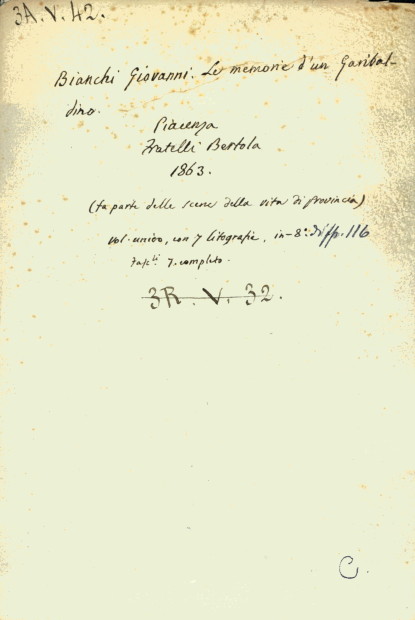 3A.V.42.
Bianchi Giovanni. Le memorie d'un Garibal-
dino.
Piacenza
Fratelli Bertola
1863.
(fa parte delle scene della vita di provincia)
vol. unico, con 7 litografie, in-8º di pp. 116
Fasc.li 7. completo.
3R. V. 32.
C.